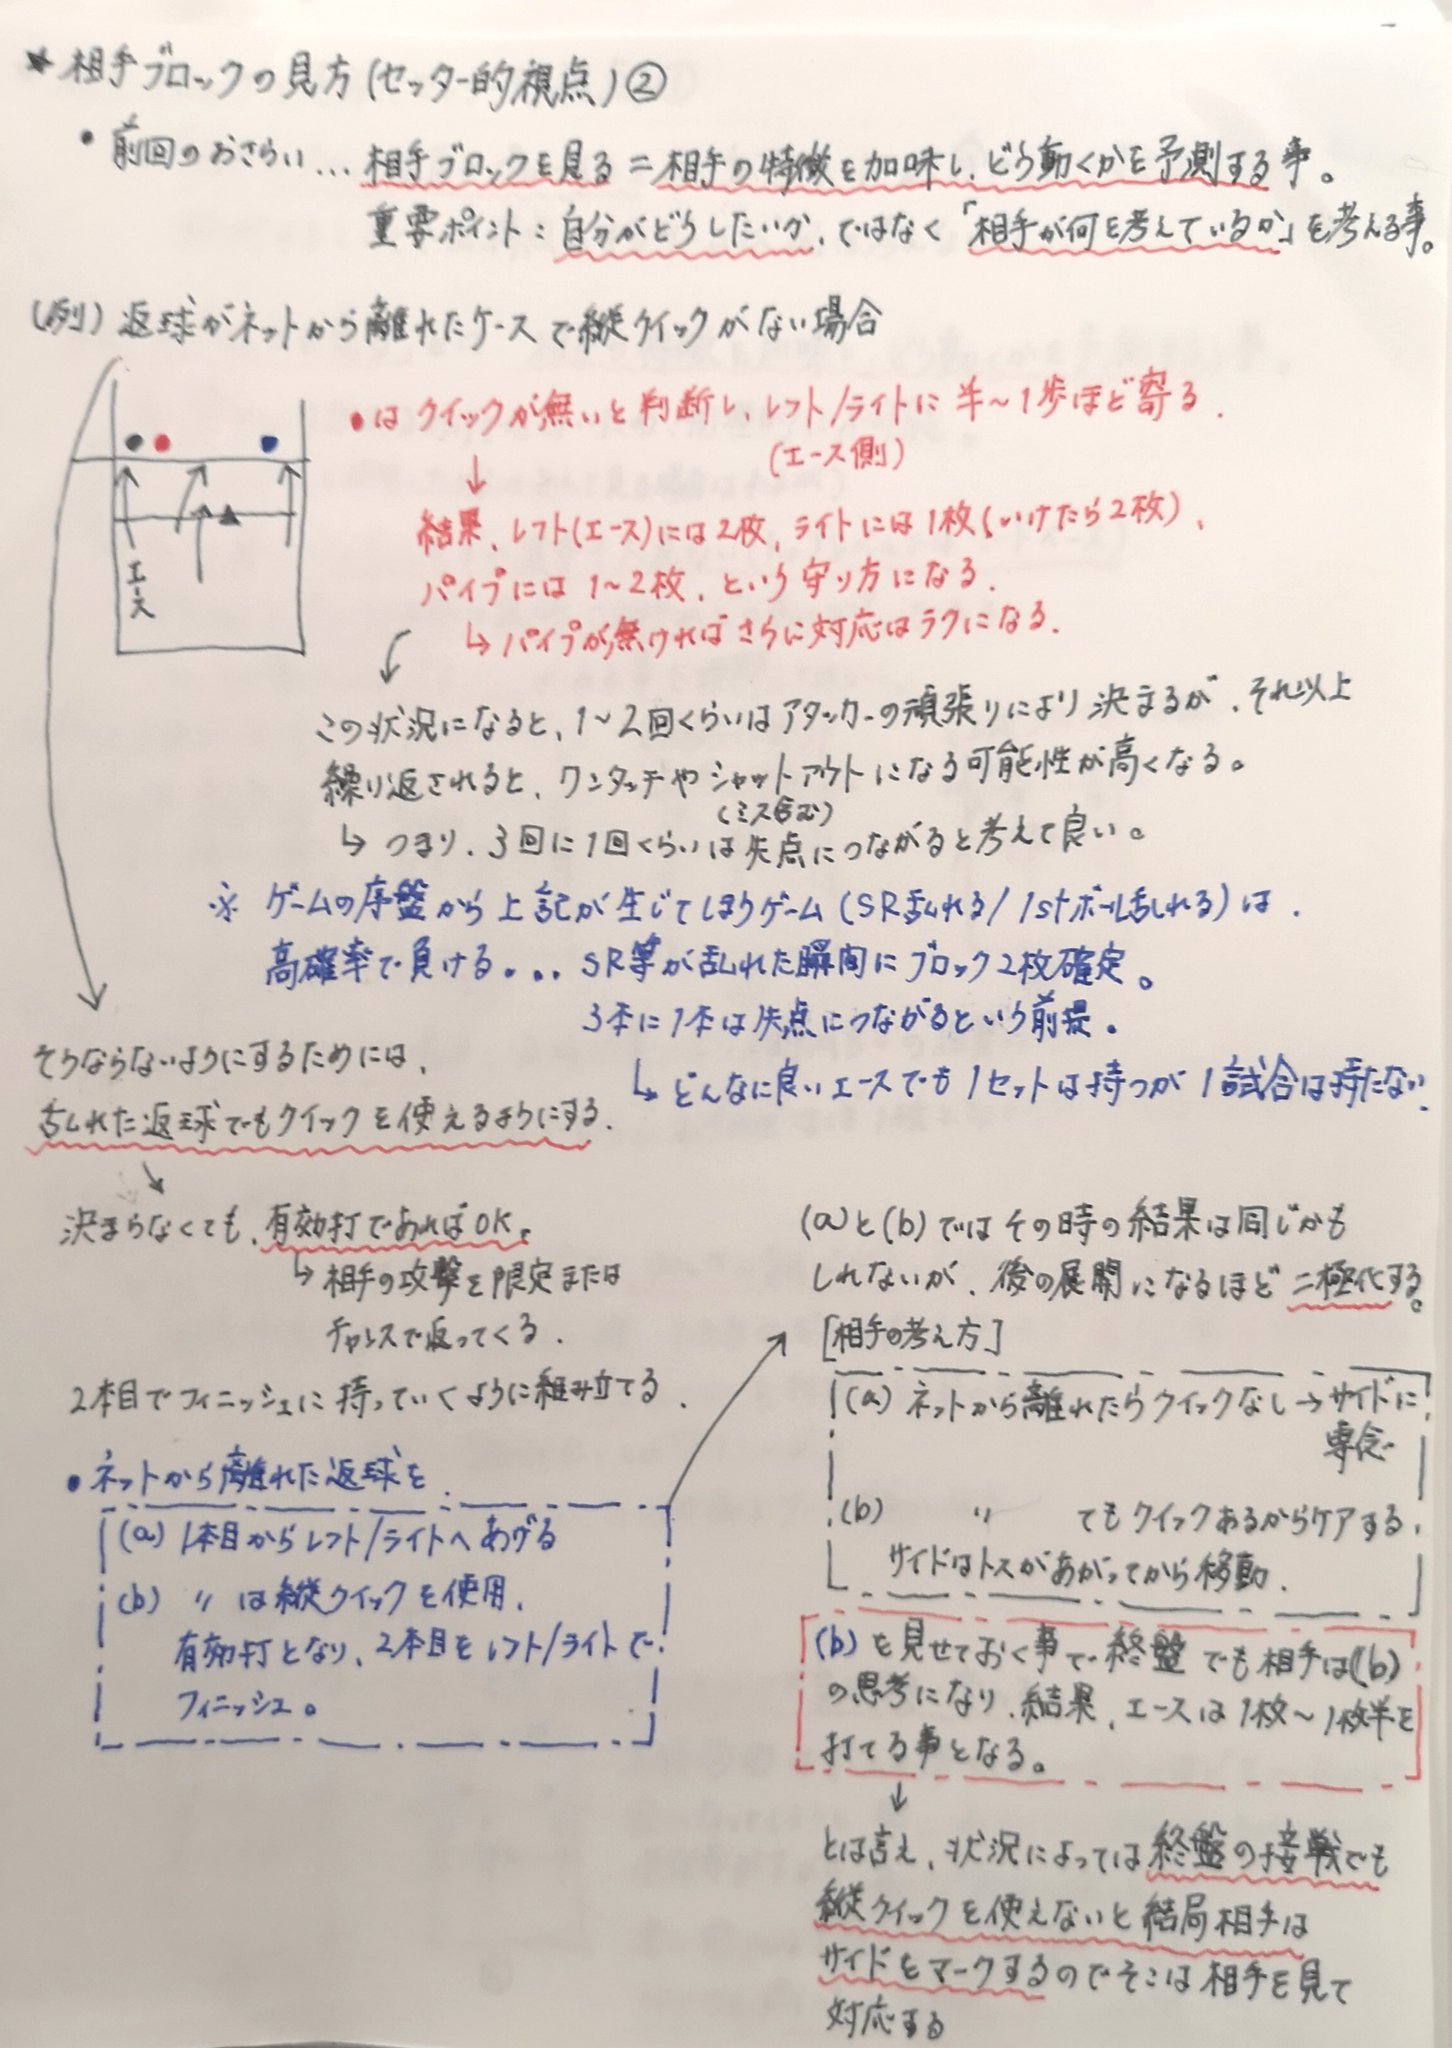 ★ 相手ブロックの見方(セッター的視点)②
• 前回のおさらい… 相手ブロックを見る = 相手の特徴を加味し、どう動くかを予測する事。
重要ポイント：自分がどうしたいか、ではなく「相手が何を考えているか」を考える事。
(例) 返球がネットから離れたケースで縦クイックがない場合
エース
●はクイックが無いと判断し、レフト/ライトに半〜1歩ほど寄る.
(エース側)
↓
結果、レフト(エース)には2枚、ライトには1枚(いけたら2枚)、
パイプには1〜2枚、という守り方になる.
↳ パイプが無ければさらに対応はラクになる.
この状況になると、1〜2回くらいはアタッカーの頑張りにより決まるが、それ以上
繰り返されると、ワンタッチやシャットアウトになる可能性が高くなる。
(ミス含む)
↳ つまり、3回に1回くらいは失点につながると考えて良い。
※ ゲームの序盤から上記が生じてしまうゲーム(SR乱れる/1stボール乱れる)は、
高確率で負ける。.. SR等が乱れた瞬間にブロック2枚確定。
3本に1本は失点につながるという前提。
↳ どんなに良いエースでも1セットは持つが1試合は持たない
そうならないようにするためには、
乱れた返球でもクイックを使えるようにする.
↓
決まらなくても、有効打であればOK。
↳ 相手の攻撃を限定または
チャンスで返ってくる.
2本目でフィニッシュに持っていくように組み立てる.
• ネットから離れた返球を、
(a) 1本目からレフト/ライトへあげる
(b) 〃 は縦クイックを使用、
有効打となり、2本目をレフト/ライトで
フィニッシュ。
(a)と(b)ではその時の結果は同じかも
しれないが、後の展開になるほど二極化する。
[相手の考え方]
(a) ネットから離れたらクイックなし→サイドに
専念
(b) 〃 てもクイックあるからケアする、
サイドはトスがあがってから移動.
(b)を見せておく事で終盤でも相手は(b)
の思考になり、結果、エースは1枚〜1枚半を
打てる事となる。
↓
とは言え、状況によっては終盤の接戦でも
縦クイックを使えないと結局相手は
サイドをマークするのでそこは相手を見て
対応する